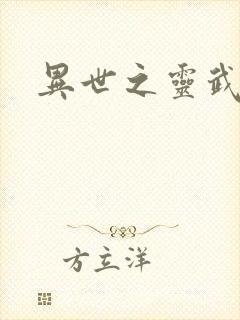 異世之靈武
方立洋